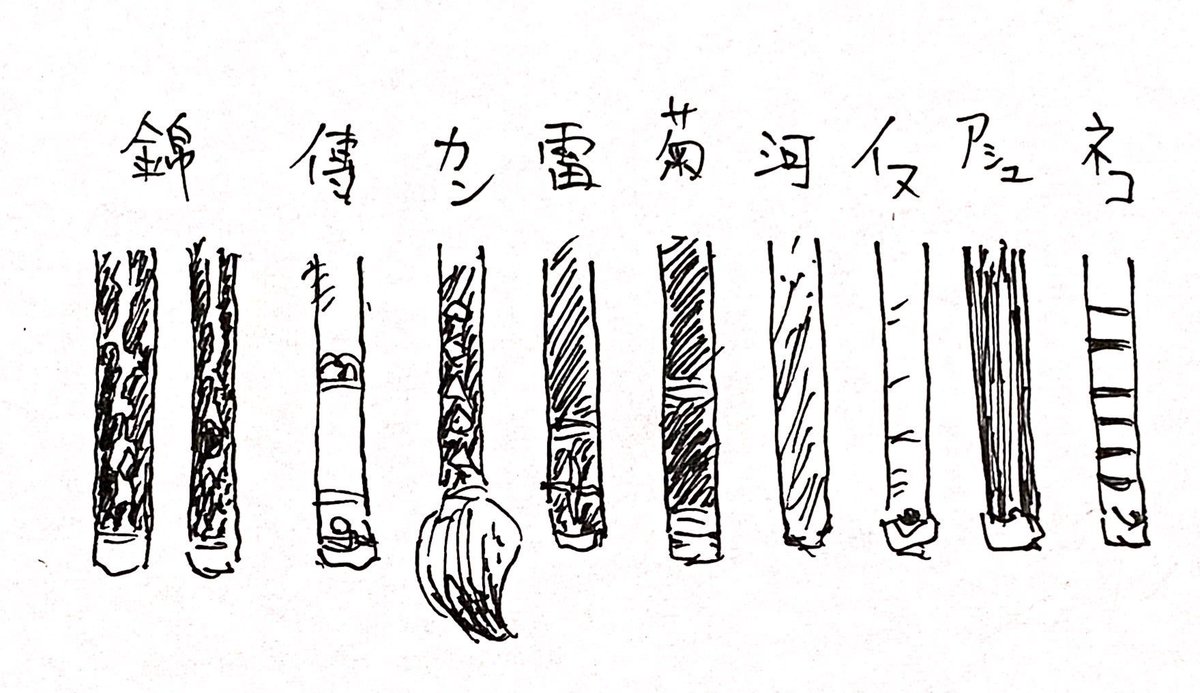 錦 傳 カン 雷 菊 河 イヌ アシュ ネコ